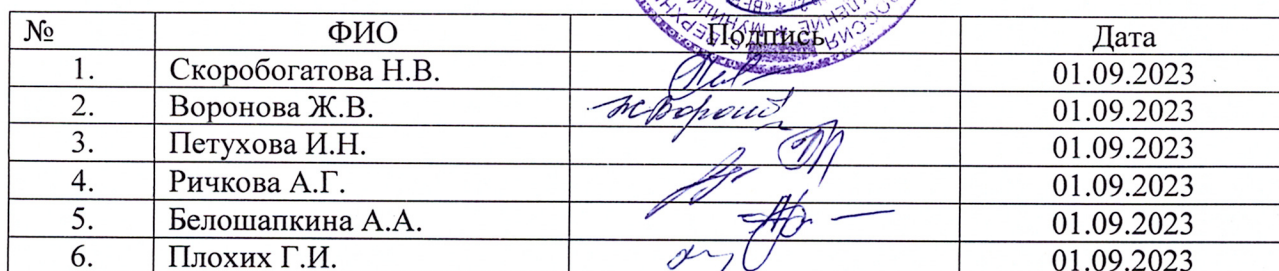 № ФИО Подпись Дата
1. Скоробогатова Н.В. 01.09.2023
2. Воронова Ж.В. 01.09.2023
3. Петухова И.Н. 01.09.2023
4. Ричкова А.Г. 01.09.2023
5. Белошапкина А.А. 01.09.2023
6. Плохих Г.И. 01.09.2023